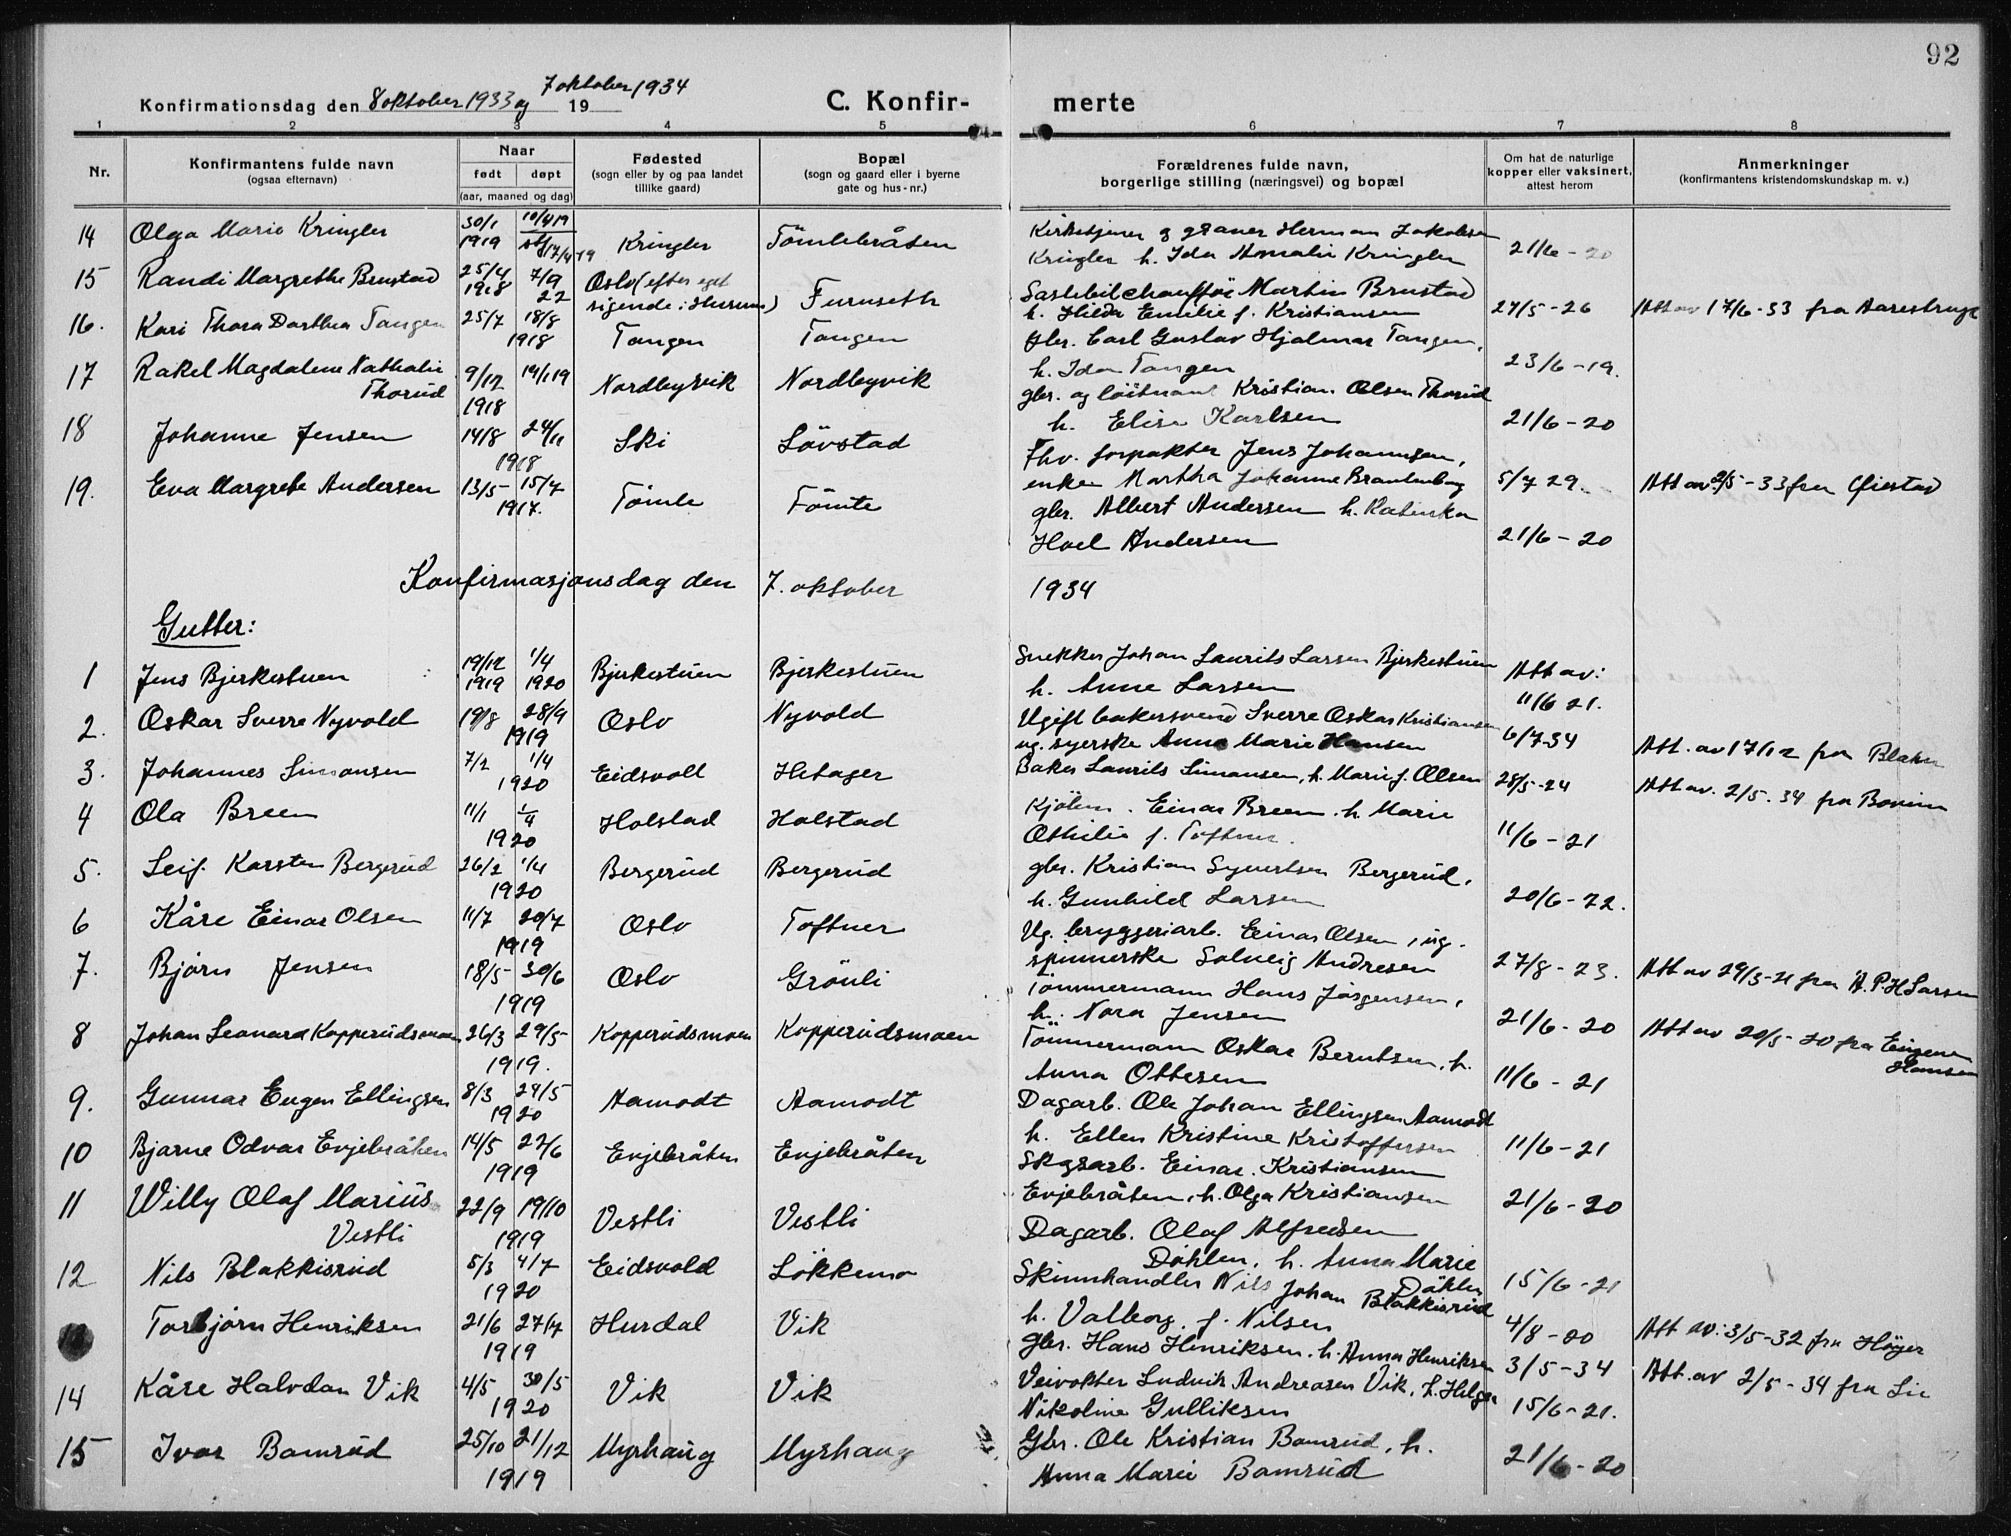 92
7 oktober 1934
Konfirmationsdag den 8 oktober 1933 og 19
C. Konfir- merte
1 2 3 4 5 6 7 8
Nr.
Konfirmantens fulde navn
(ogsaa efternavn)
Naar
født døpt
(aar, maaned og dag)
Fødested
(sogn eller by og paa landet
tillike gaard)
Bopæl
(sogn og gaard eller i byerne
gate og hus-nr.)
Forældrenes fulde navn,
borgerlige stilling (næringsvei) og bopæl
Om hat de naturlige
kopper eller vaksinert,
attest herom
Anmerkninger
(konfirmantens kristendomskundskap m. v.)
14 Olga Marie Kringler 30/1 1919 10/4 19 stf 17/4 19 Kringler Tömtebråten
Kirketjener og graver Herman Jakobsen
Kringler h. Ida Amalie Kringler 21/6 - 20
15 Randi Margrethe Brustad 25/4 1918 7/9 22 Oslo (efter eget
sigende: Hurum) Furuseth
Lastebilchauffør Martin Brustad
h. Hilda Emilie f. Kristiansen 27/5 - 26 Att av 17/6 - 33 fra Aarestrup
16. Kari Thora Dorthea Tangen 25/7 18/8 1918 Tangen Tangen
gbr. Carl Gustav Hjalmar Tangen,
h. Ida Tangen 23/6 - 19.
17 Rakel Magdalene Nathalie
Thorud 9/12 1918 19/1 19 Nordbyvik Nordbyvik
gbr. og løitnant Kristian Olsen Thorud
h. Elise Karlsen 21/6 - 20
18 Johanne Jensen 14/8 24/11 1918 Ski Lövstad
Fhv. forpakter Jens Johannsen,
enke Martha Johanne Brandenborg 5/7 29. Att av 2/5 - 33 fra Øiestad
19. Eva Margrete Andersen 13/5 - 15/7 1917. Tömte Tömte
gbr. Albert Andersen h. Katinka
Hoel Andersen 21/6 - 20
Konfirmasjonsdag den 7. oktober 1934
Gutter:
1 Jens Bjerkestuen 19/12 1919 1/4 1920 Bjerkestuen Bjerkestuen
Snekker Johan Laurits Larsen Bjerkestuen
h. Anne Larsen Att av: 11/6 21.
2. Oskar Sverre Nyvold 19/8 28/9 1919 Oslo Nyvold
Ugift bakersvend Sverre Oskar Kristiansen
ug. syerske Anna Marie Hansen 6/7 34 Att. av 17/12 fra Blakn
3. Johannes Simonsen 7/2 1/4 1920 Eidsvoll Hetager
Baker Laurits Simonsen, h. Marie f. Olsen 28/5 - 24 Att av. 2/5 - 34 fra Bonin
4 Ola Breen 11/1 1/4 1920 Holstad Holstad
Kjölem. Einar Breen. h. Marie
Othilie f. Toftner. 11/6 - 21
5. Leif. Karsten Bergerud 26/2 1/4 1920 Bergerud Bergerud
gbr. Kristian Syvertsen Bergerud,
h. Gunhild Larsen 20/6 - 22.
6 Kåre Einar Olsen 11/7 20/7 1919 Oslo Toftner
Ug. bryggeriarb. Einar Olsen, ug.
spinnerske Solveig Andresen 27/8 - 23. Att av 29/3 - 21 fra A. P. H Larsen
7. Bjørn Jensen 18/5 - 30/6 1919 Oslo Grönli
Tömmermann Hans Jørgensen,
h. Nora Jensen 21/6 - 20 Att av 20/5 - 20 fra Eugene Hansen
8 Johan Leonard Kopperudsmoen 26/3 29/5 1919. Kopperudsmoen Kopperudsmoen
Tömmermann Oskar Berntsen, h.
Anna Ottesen 11/6 - 21
9. Gunnar Eugen Ellingsen 8/3 24/5 1920 Aamodt Aamodt
Dagarb. Ole Johan Ellingsen Aamodt
h. Ellen Kristine Kristoffersen 11/6 - 21
10 Bjarne Odvar Evjebråten 14/5 27/6 1919 Evjebråten Evjebråten
Skgsarb. Einar. Kristiansen
Evjebråten, h. Olga Kristiansen 21/6 - 20
11 Willy Olaf Marius
Vestli 22/9 19/10 1919 Vestli Vestli
Dagarb. Olaf Alfredsen
Döhlen, h. Anna Marie
Döhlen 15/6 - 21
12 Nils Blakkisrud 5/3 4/7 1920 Eidsvold Lökkemo
Skinnhandler Nils Johan Blakkisrud
h. Valborg. f. Nilsen 4/8 - 20 Att av: 3/5 - 32 fra Höyer
Torbjørn Henriksen 21/6 27/7 1919 Hurdal Vik
Gbr. Hans Henriksen. h. Anna Henriksen 3/5 - 34 Att. av 2/5 - 34 fra Lie
14 Kåre Halvdan Vik 4/5 30/5 1920 Vik Vik
Veivokter Ludvik Andreasen Vik, h. Helga
Nikoline Gulliksen 15/6 - 21.
15 Ivar Bamrud 25/10 21/12 1919 Myrhaug Myrhaug
Gbr. Ole Kristian Bamrud, h.
Anna Marie Bamrud 21/6 - 20